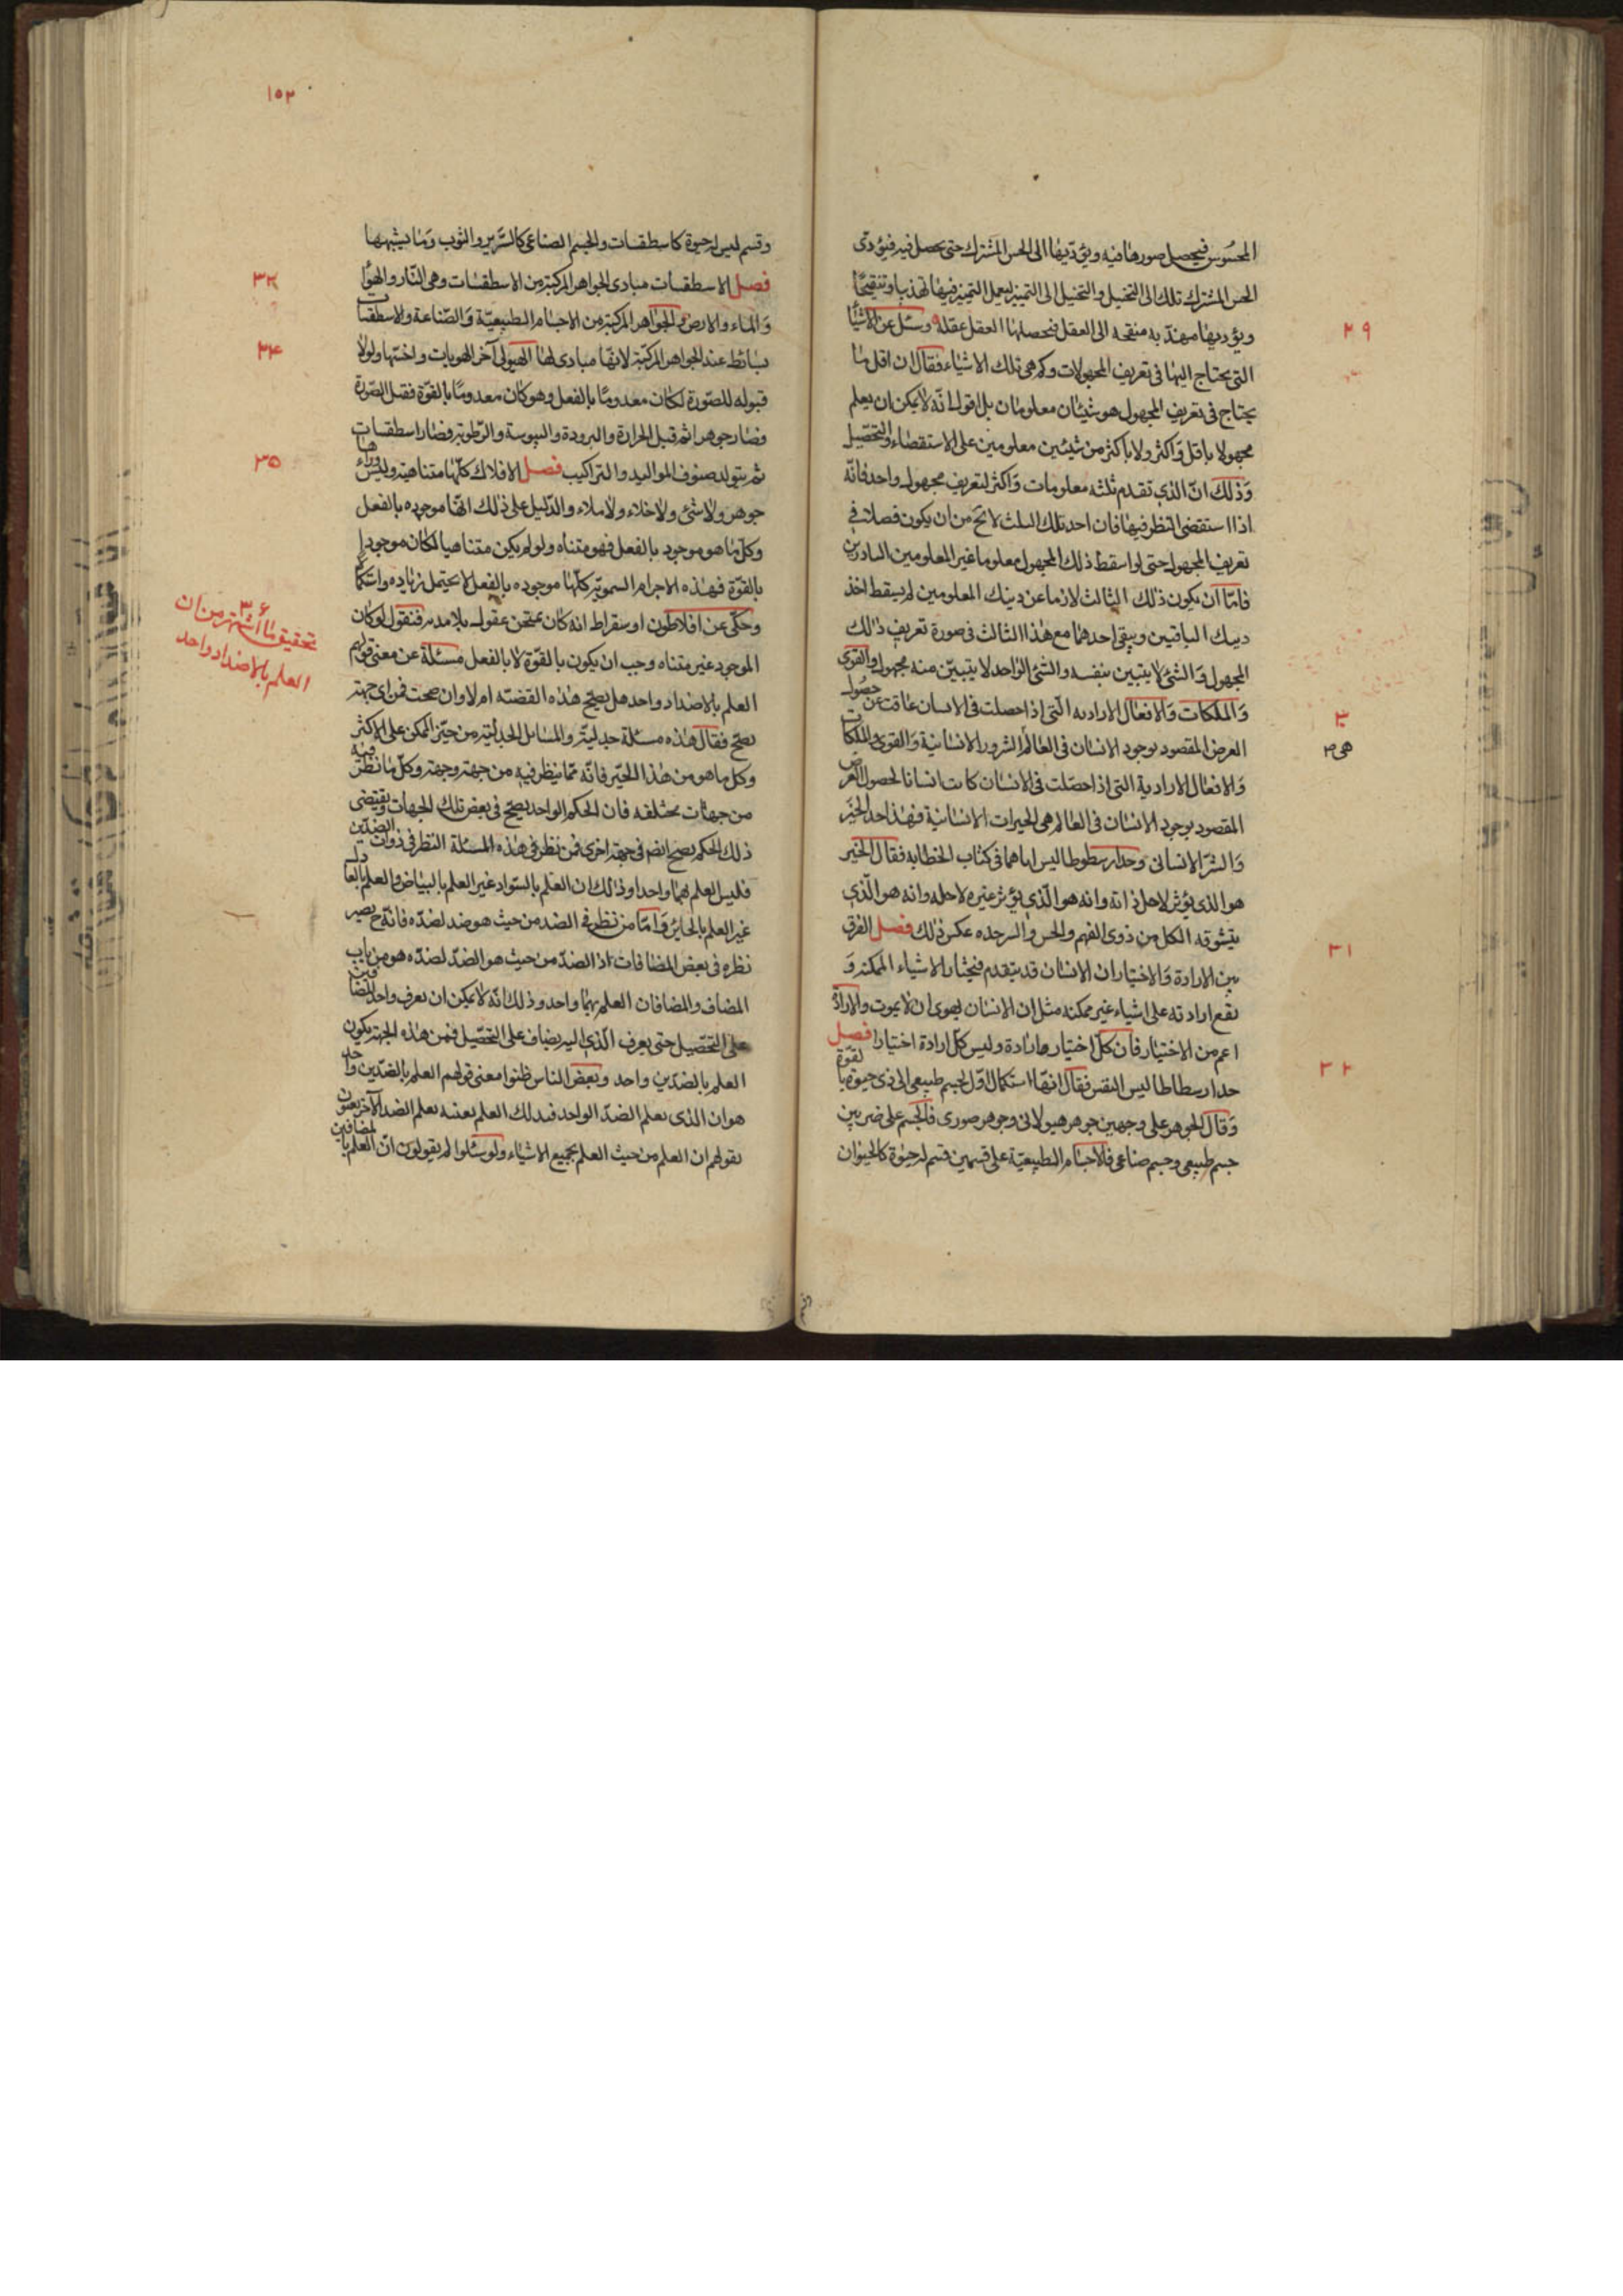 المحسوس فيحصل صورها فيه ويؤديها الى الحس المشترك حتى يحصل فيه فيؤدى
الحس المشترك تلك الى التخيل والتخيل الى التميز ليعمل التميز فيها تهذيبا وتنقيحا
ويؤديها مهذبه منقحه الى العقل فيحصلها العقل عقله وسئل عن الاشيا
التى يحتاج اليها فى تعريف المجهولات وكم هى تلك الاشياء فقال ان اقل ما
يحتاج فى تعريف المجهول هو شيئان معلومان بل اقول انه لا يمكن ان يعلم
مجهولا باقل واكثر ولا باكثر من شيئين معلومين على الاستقصاء والتحصيل
وذلك ان الذى تقدم ثلثه معلومات واكثر لتعريف مجهول واحد فانه
اذا استقضى النظر فيها فان احد تلك الثلث لا يخ من ان يكون فصلا فى
تعريف المجهول حتى لو اسقط ذلك المجهول معلوما غير المعلومين
فاما ان يكون ذلك الثالث لازما عن دينك المعلومين لم يسقط اخذ
دينك الباقيين ويبقى احدهما مع هذا الثالث فى صورة تعريف ذلك
المجهول والشئ لا يتبين بنفسه والشئ الواحد لا يتبين منه مجهول والقوى
والملكات والافعال الاراديه التى اذا حصلت فى الانسان عاقت عن حصول
الغرض المقصود بوجود الانسان فى العالم الشرور الانسانية والقوى والملكات
والافعال الارادية التى اذا حصلت فى الانسان كانت اسبابا لحصول الغرض
المقصود بوجود الانسان فى العالم هى الخيرات الانسانية فهذا حد الخير
والشر الانسانى وحد ارسطوطاليس اياهما فى كتاب الخطابه فقال الخير
هو الذى يؤثر لاجل ذاته وانه هو الذى يؤثر غيره لاجله وانه هو الذى
يتشوقه الكل من ذوى الفهم والحس والشر حده عكس ذلك فصل الفرق
بين الارادة والاختيار ان الانسان قد يتقدم فيختار الاشياء الممكنه و
يقع ارادته على اشياء غير ممكنه مثل ان الانسان يهوى ان لا يموت والارادة
اعم من الاختيار فان كل اختيار ارادة وليس كل ارادة اختيارا فصل
حد ارسطاطاليس النفس فقال انها استكمال اول لجسم طبيعى الى ذى حيوة بالقوة
وقال الجوهر على وجهين جوهر هيولانى وجوهر صورى فالجسم على ضربين
جسم طبيعى وجسم صناعى فالاجسام الطبيعية على قسمين قسم له حيوة كالحيوان
٢٩
٣٠
هى
٣١
٣٢
١٥٢
وقسم ليس له حيوة كاسطقسات والجسم الصناعى كالسرير والثوب وما يشبهها
فصل الاسطقسات مبادى الجواهر المركبة من الاسطقسات وهى النار والهوا
والماء والارض والجواهر المركبة من الاجسام الطبيعية والصناعة والاسطقسات
بسائط عند الجواهر المركبة لانها مبادى لها الهيولى آخر الهويات واخسها ولولا
قبوله للصورة لكان معدوما بالفعل وهو كان معدوما بالقوة فقبل الصورة
فصار جوهرا ثم قبل الحرارة والبرودة واليبوسة والرطوبة فصار اسطقسات
ثم يتولد صنوف المواليد والتراكيب فصل الافلاك كلها متناهية وليس وراءها
جوهر ولا شئ ولا خلاء ولا ملاء والدليل على ذلك انها موجوده بالفعل
وكل ما هو موجود بالفعل فهو متناه ولو لم يكن متناهيا لكان موجودا
بالقوة فهذه الاجرام السموية كلها موجوده بالفعل لا يحتمل زياده واستكمالا
وحكى عن افلاطون او سقراط انه كان يمتحن عقول تلامذته فيقول لو كان
الموجود غير متناه وجب ان يكون بالقوة لا بالفعل مسئلة عن معنى قولهم
العلم بالاضداد واحد هل يصح هذه القضية ام لا وان صحت فمن اى جهة
يصح فقال هذه مسئلة جدلية والمسايل الجدلية من حيز الممكن على الاكثر
وكل ما هو من هذا الحيز فانه مما ينظر فيه من جهة وجهة وكل ما نظر فيه
من جهات مختلفه فان الحكم الواحد يصح فى بعض تلك الجهات ويقتضى
ذلك الحكم يصح ايضا فى جهة اخرى فمن نظر فى هذه المسئلة النظر فى ذوات الضدين
فليس العلم بهما واحدا وذلك ان العلم بالسواد غير العلم بالبياض والعلم بالعادل
غير العلم بالجاير واما من نظر فى الضد من حيث هو ضد لضده فانه ح يصير
نظره فى بعض المضافات اذ الضد من حيث هو الضد لضده هو من باب
المضاف والمضافان العلم بهما واحد وذلك انه لا يمكن ان يعرف واحد المضافين
على التحصيل حتى يعرف الذى اليه يضاف على التحصيل فمن هذه الجهة يكون
العلم بالضدين واحد وبعض الناس ظنوا معنى قولهم العلم بالضدين واحد
هو ان الذى يعلم الضد الواحد فبذلك العلم بعينه يعلم الضد الآخر يعنون
بقولهم ان العلم من حيث العلم بجميع الاشياء ولو سئلوا لم يقولون ان العلم بالمضافين
٣٣
٣٤
٣٥
٣٦
تحقيق ما اشتهر من ان
العلم بالاضداد واحد